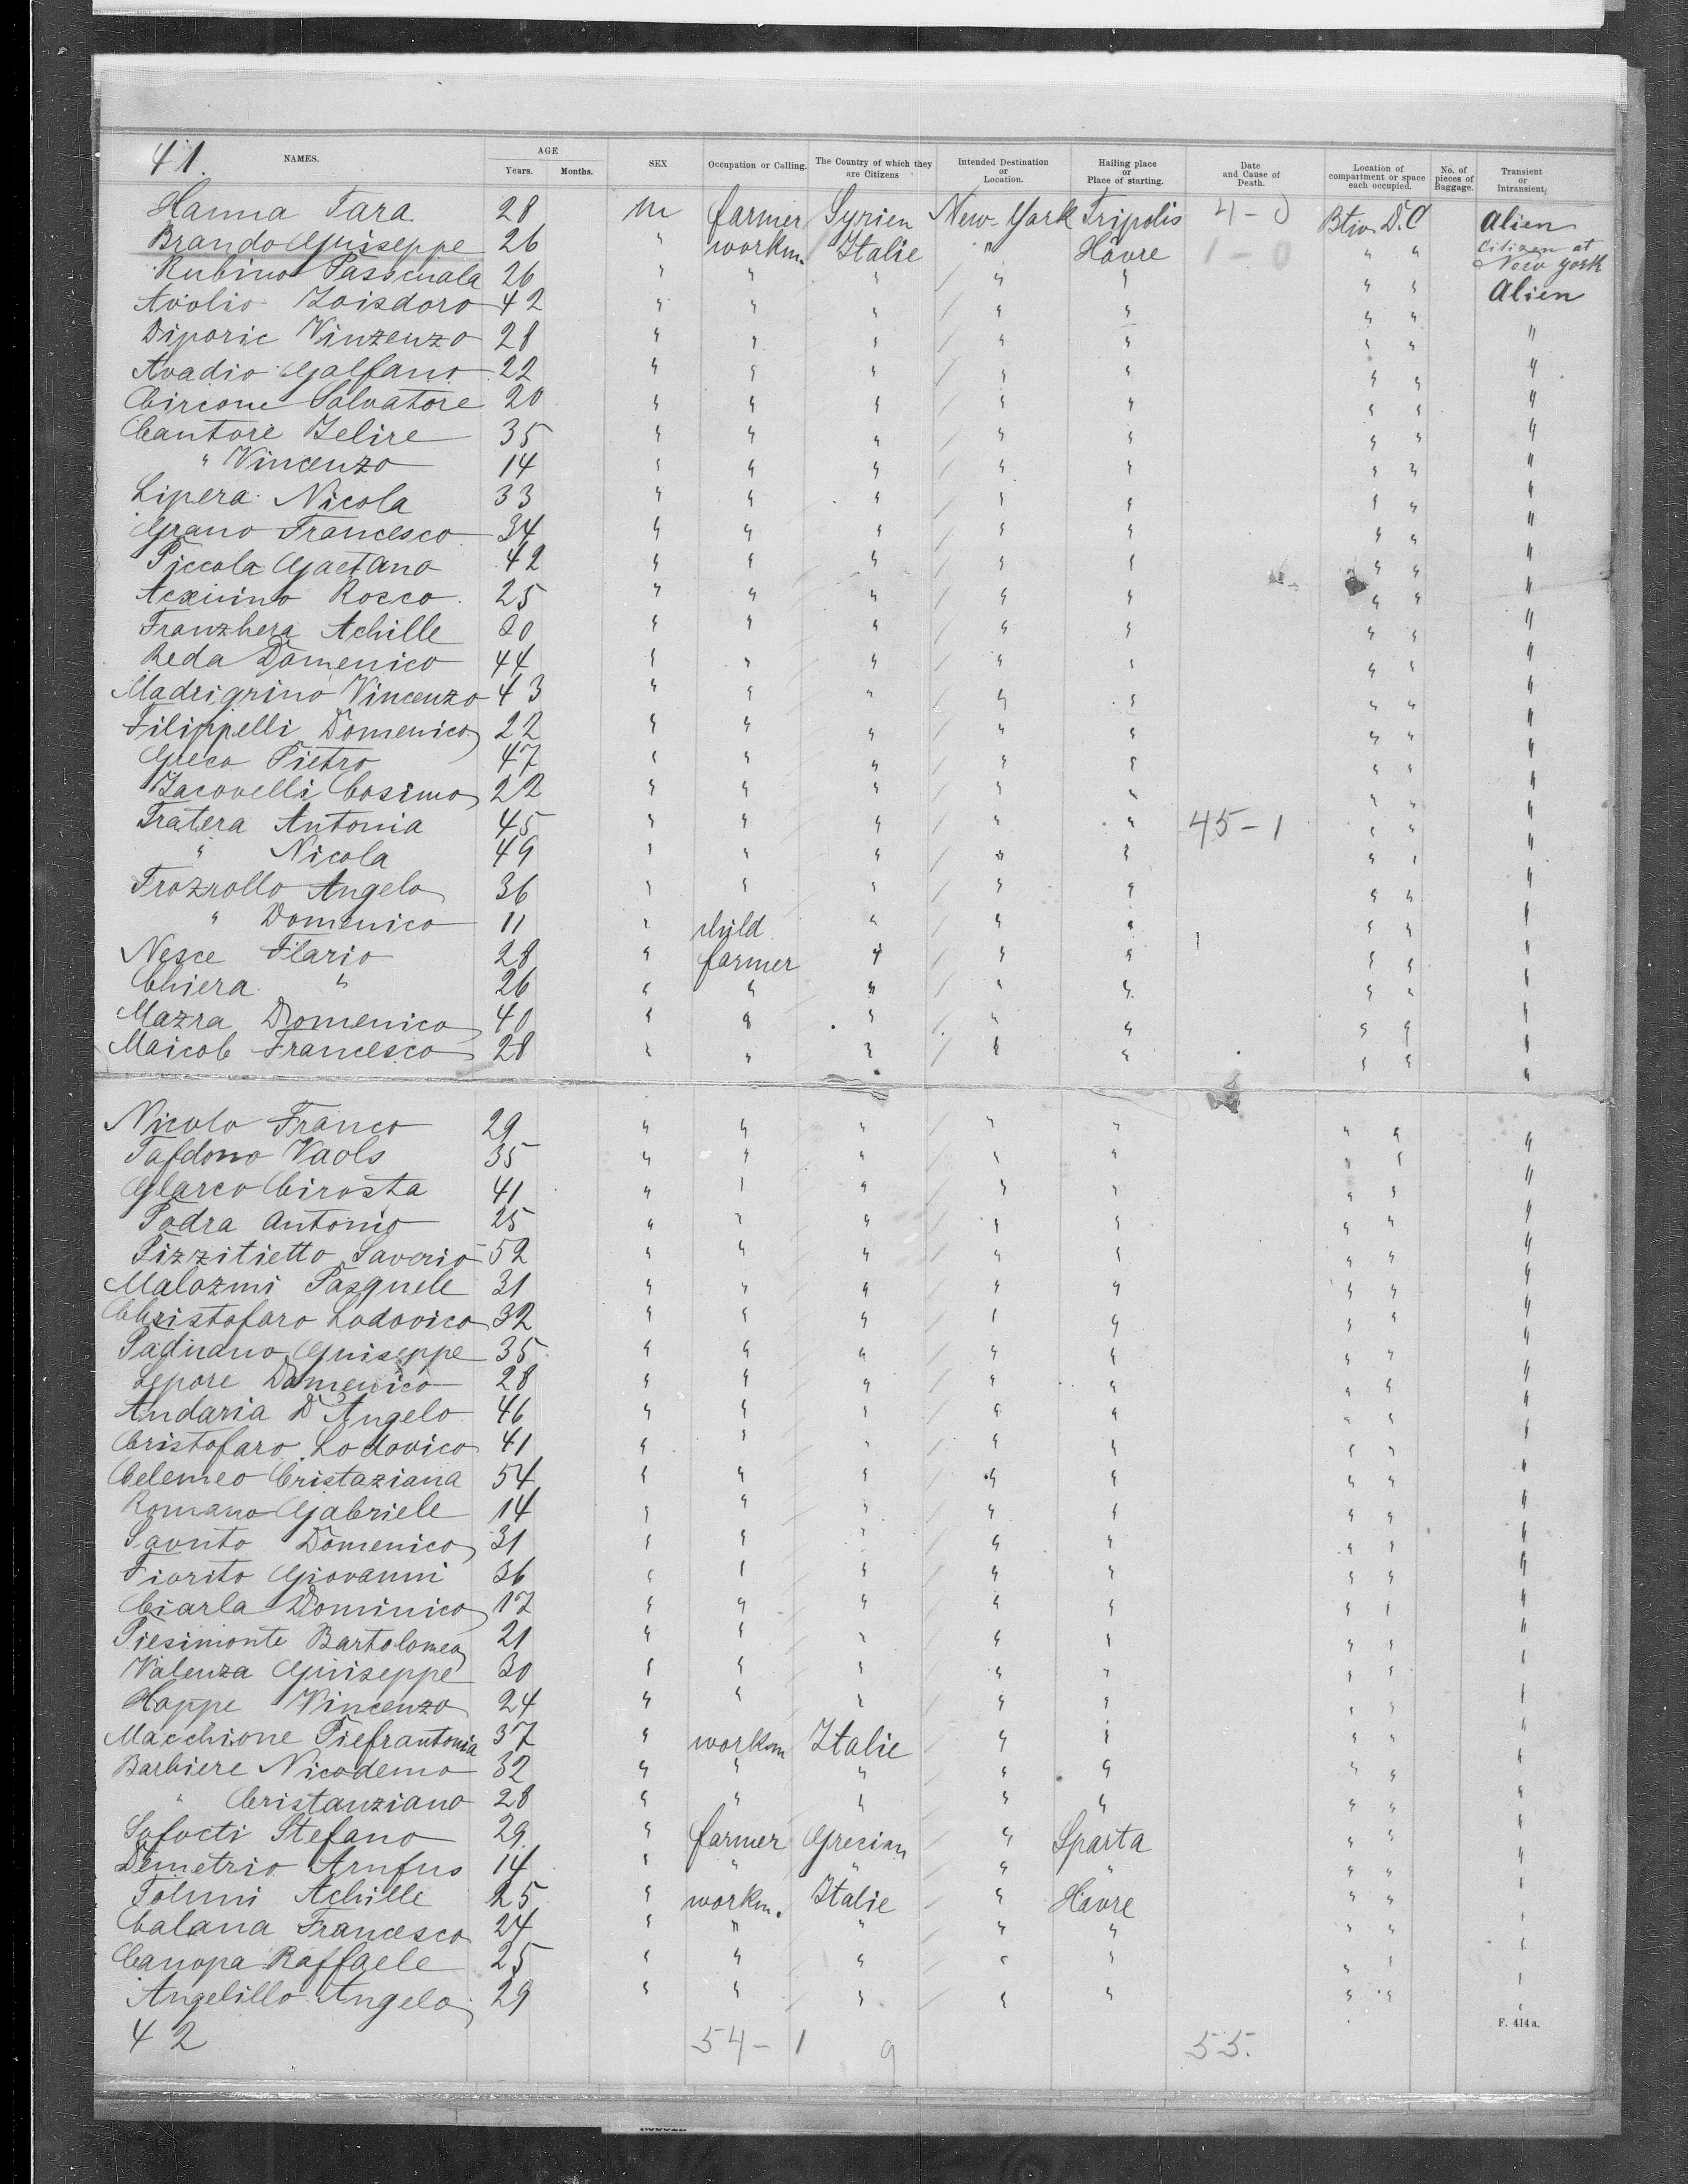 41. NAMES. AGE Years. Months. SEX Occupation or Calling. The Country of which they are Citizens Intended Destination or Location. Hailing place or Place of starting. Date and Cause of Death. Location of compartment or space each occupied. No. of pieces of Baggage. Transient or Intransient,
Hanna Tara 28 m farmer Syrien New-York Tripolis 4-0 Btw. D. C Alien
Brando Guiseppe 26 " workm. Italie " Havre 1-0 " " Citizen at New york
Rubino Passcuala 26 " " " " " " " Alien
Avolio Loisdoro 42 " " " " " " " "
Diporic Vinzenzo 28 " " " " " " " "
Avadio Galfano 22 " " " " " " " "
Circone Salvatore 20 " " " " " " " "
Cantore Felire 35 " " " " " " " "
" Vincenzo 14 " " " " " " " "
Lipera Nicola 33 " " " " " " " "
Grano Francesco 34 " " " " " " " "
Piccola Gaetano 42 " " " " " " " "
Rocco 25 " " " " " " " "
Franzhera Achille 30 " " " " " " " "
Reda Domenico 44 " " " " " " " "
Madrigrino Vincenzo 43 " " " " " " " "
Filippelli Domenico 22 " " " " " " " "
Greco Pietro 47 " " " " " " " "
Iacovelli Cosimo 22 " " " " " " " "
Fratera Antonia 45 " " " " " 45-1 " " "
" Nicola 49 " " " " " " " "
Trozrollo Angelo 36 " " " " " " " "
" Domenico 11 " child " " " " " "
Nesce Ilario 28 " farmer " " " " " "
Chiera " 26 " " " " " " " "
Mazra Domenico 40 " " " " " " " "
Maicob Francesco 28 " " " " " " " "
Nicolo Franco 29 " " " " " " " "
Tafdono Vaols 35 " " " " " " " "
Glarco Cirosta 41 " " " " " " " "
Podra Antonio 25 " " " " " " " "
Pizzitietto Saverio 52 " " " " " " " "
Malozmi Pasquele 31 " " " " " " " "
Christofaro Lodovico 32 " " " " " " " "
Paduano Guiseppe 35 " " " " " " " "
Lepore Domenico 28 " " " " " " " "
Andaria D'Angelo 46 " " " " " " " "
Cristofaro Lodovico 41 " " " " " " " "
Celemeo Cristaziana 54 " " " " " " " "
Romano Gabriele 14 " " " " " " " "
Savuto Domenico 31 " " " " " " " "
Fiorito Giovanni 36 " " " " " " " "
Ciarla Dominico 17 " " " " " " " "
Piesimonte Bartolomeo 21 " " " " " " " "
Valenza Guiseppe 30 " " " " " " " "
Happe Vincenzo 24 " " " " " " " "
Macchione Piefrantonia 37 " workm Italie " " " " "
Barbiere Nicodemo 32 " " " " " " " "
" Cristanziano 28 " " " " " " " "
Sofocti Stefano 29 " farmer Grecian " Sparta " " "
Demetrio Arufus 14 " " " " " " " "
Tolmi Achille 25 " workm. Italie " Havre " " "
Calana Francesco 24 " " " " " " " "
Canopa Raffaele 25 " " " " " " " "
Angelillo Angelo 29 " " " " " " " "
42 54-1 9 55. F. 414 a.